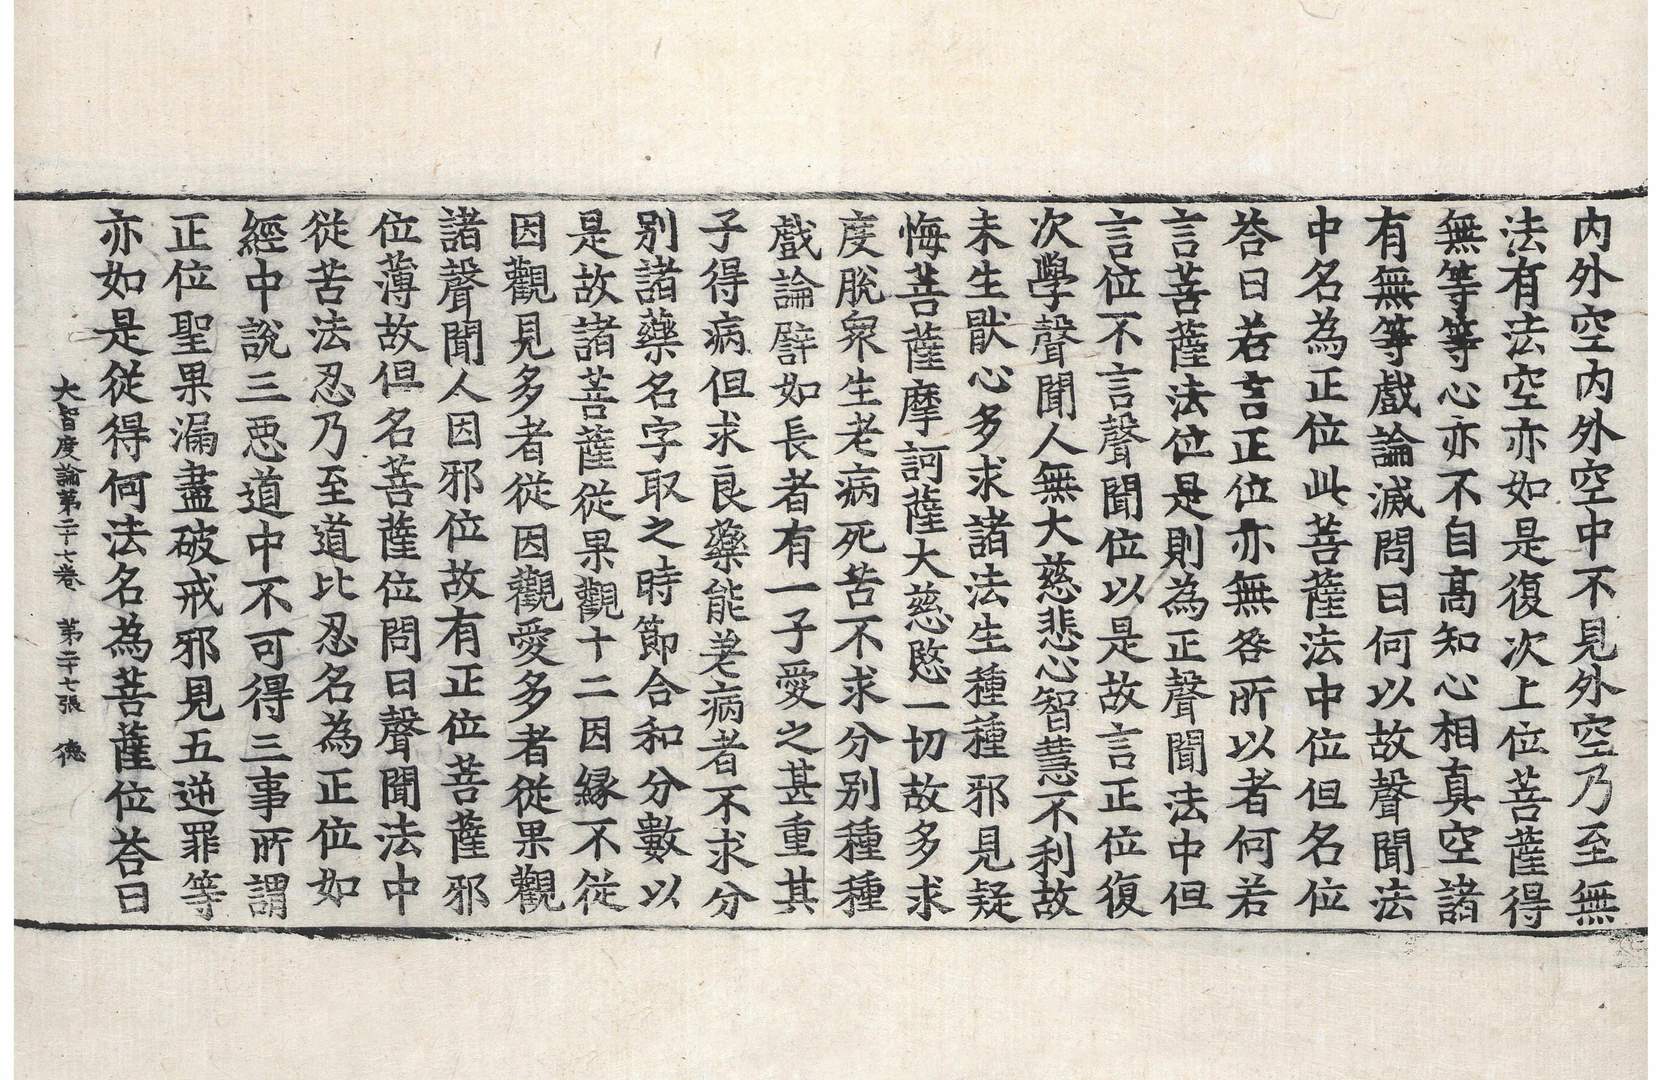 内外空内外空中不見外空乃至無
法有法空亦如是復次上位菩薩得
無等等心亦不自高知心相真空諸
有無等戲論滅問曰何以故聲聞法
中名為正位此菩薩法中位但名位
荅曰若言正位亦無咎所以者何若
言菩薩法位是則為正聲聞法中但
言位不言聲聞位以是故言正位復
次學聲聞人無大慈悲心智慧不利故
未生猒心多求諸法生種種邪見疑
悔菩薩摩訶薩大慈愍一切故多求
度脫衆生老病死苦不求分别種種
戲論譬如長者有一子愛之甚重其
子得病但求良藥能差病者不求分
别諸藥名字取之時節合和分數以
是故諸菩薩從果觀十二因緣不從
因觀見多者從因觀愛多者從果觀
諸聲聞人因邪位故有正位菩薩邪
位薄故但名菩薩位問曰聲聞法中
從苦法忍乃至道比忍名為正位如
經中說三惡道中不可得三事所謂
正位聖果漏盡破戒邪見五逆罪等
亦如是從得何法名為菩薩位荅曰
大智度論第二十七卷　第二十七張　德